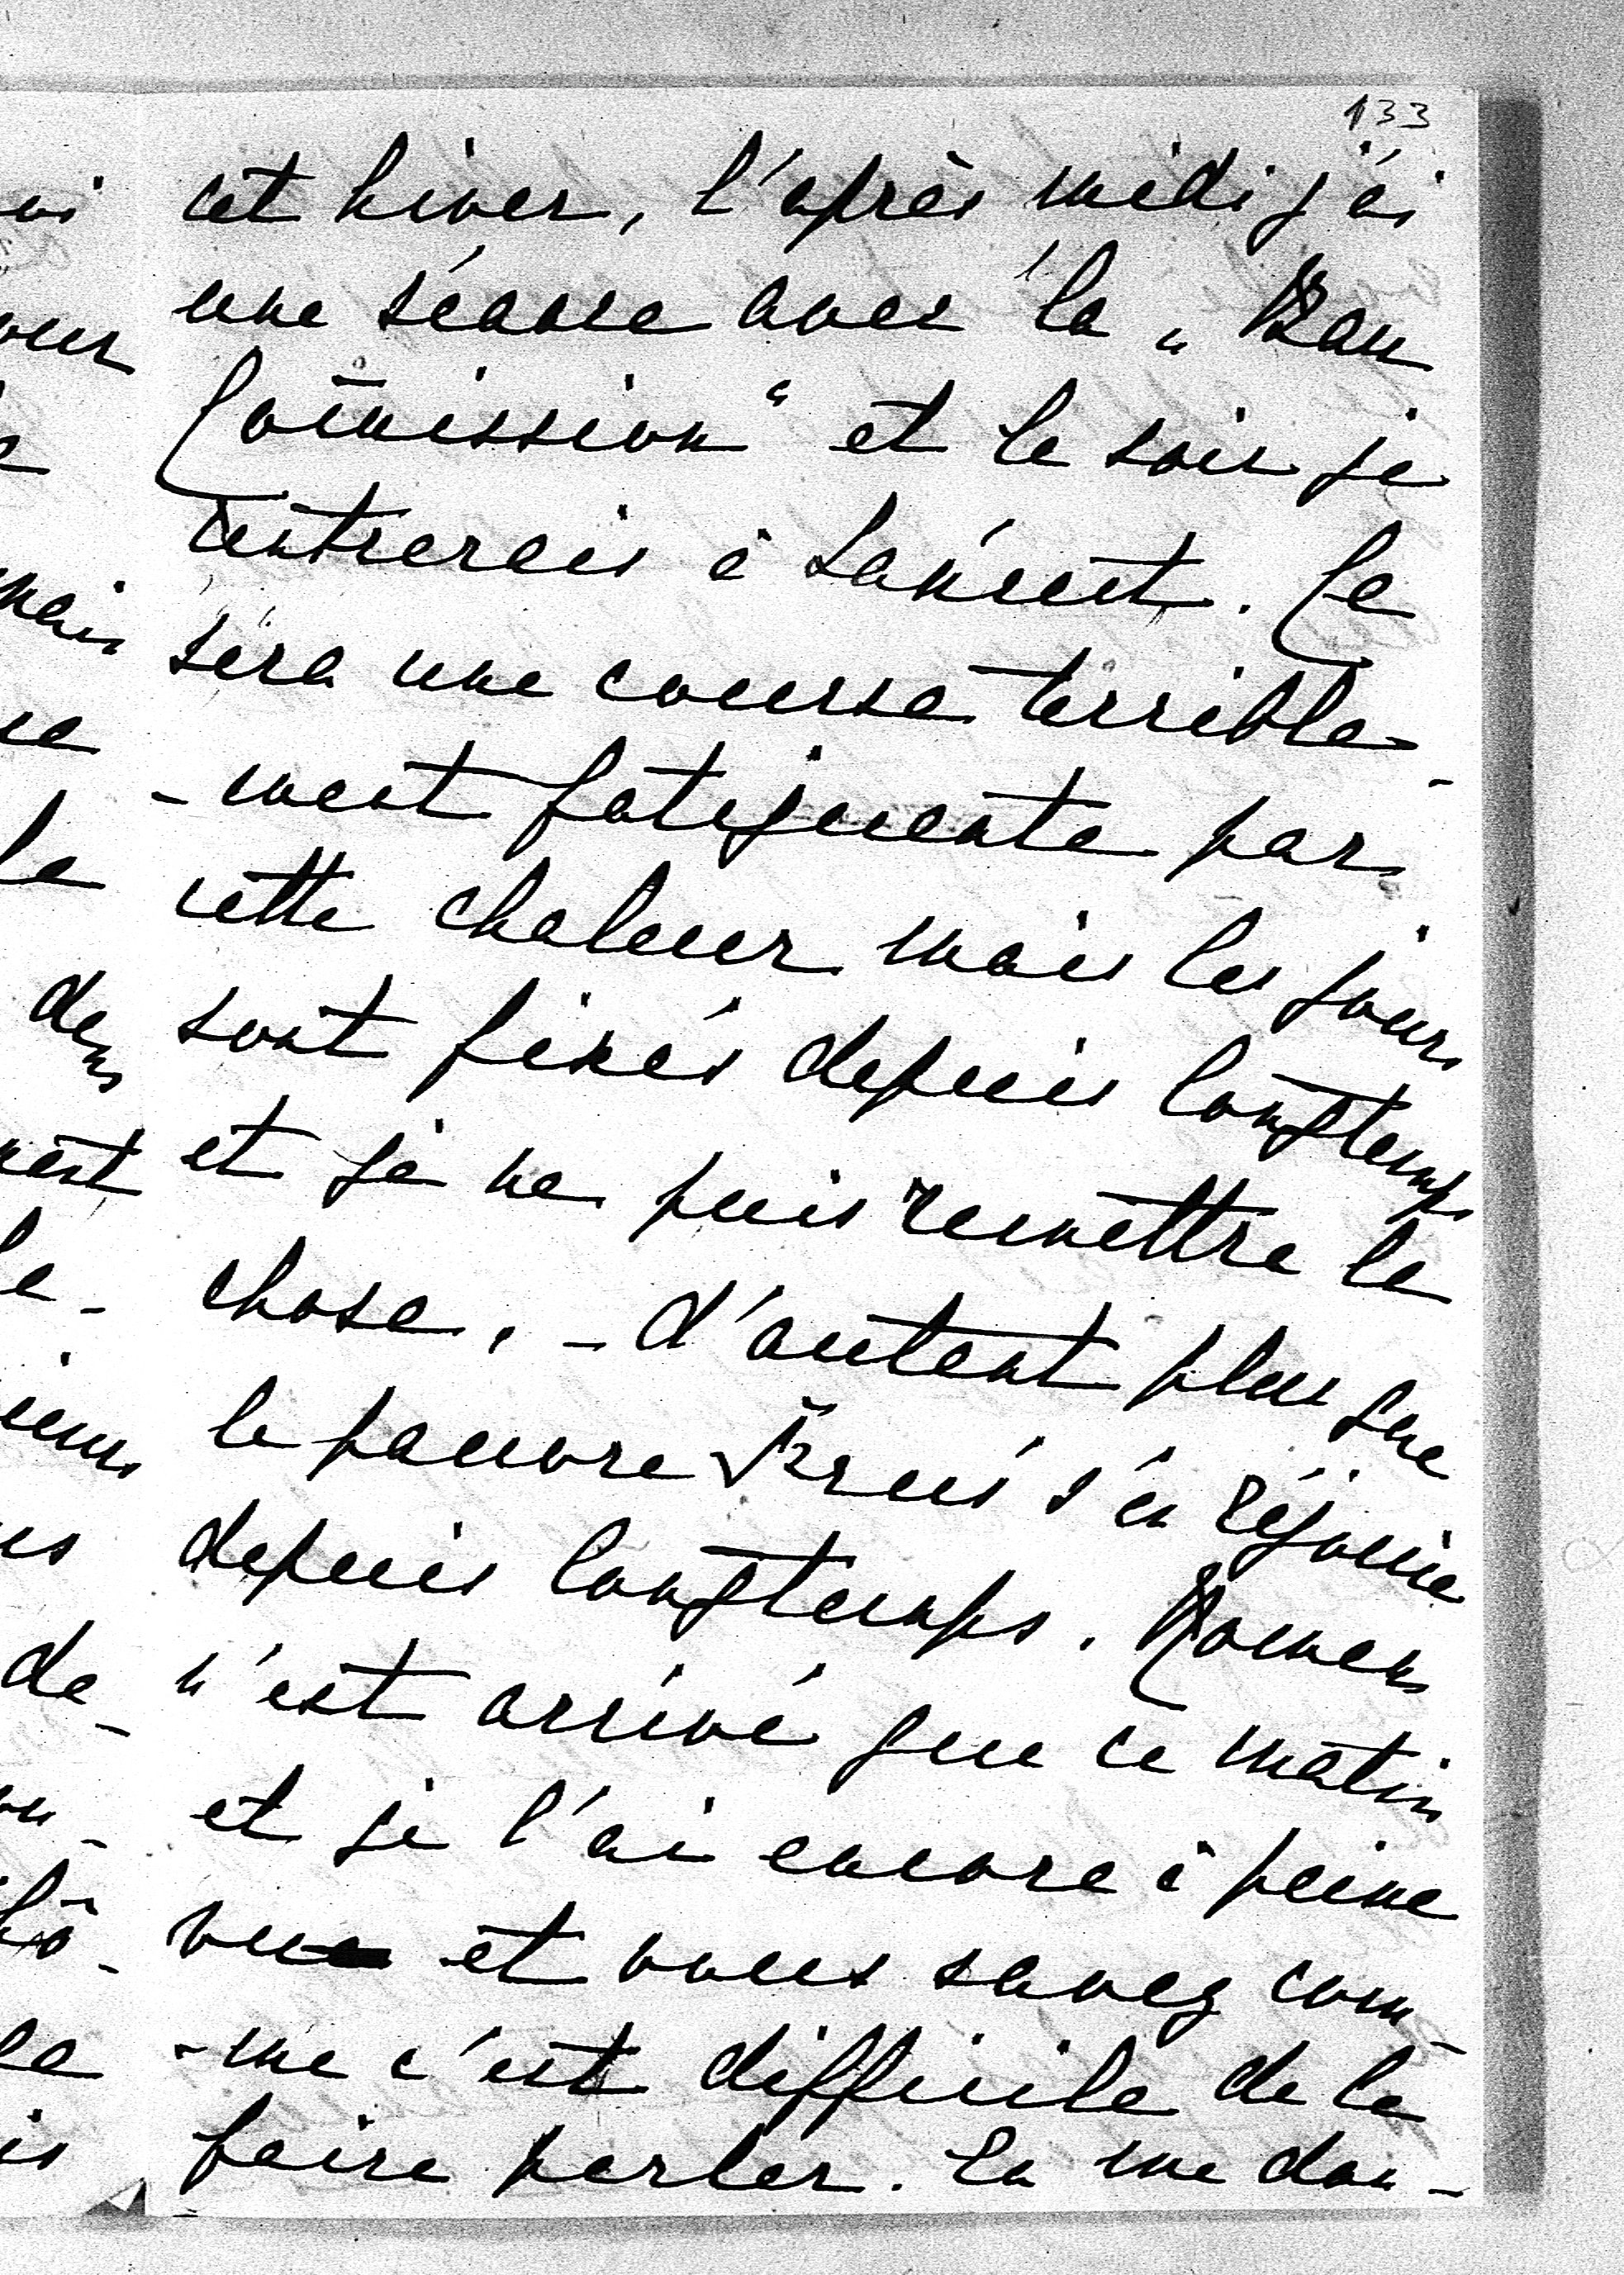 133
cet hiver, l'après midi j'ai
une séance avec la „Bau
Com̄ission“ et le soir je
rentrerais à Lancut. Ce
sera une course terrible-
-ment fatiguante par
cette chaleur mais les jours
sont fixés depuis longtemps
et je ne puis remettre la
chose. - d'autant plus que
le pauvre s'en réjouie
depuis longtemps. Roman
n'est arrivé que ce matin
et je l'ai encore à peine
vu et vous savez com-
-me c'est difficile de le
faire parler. En me don-